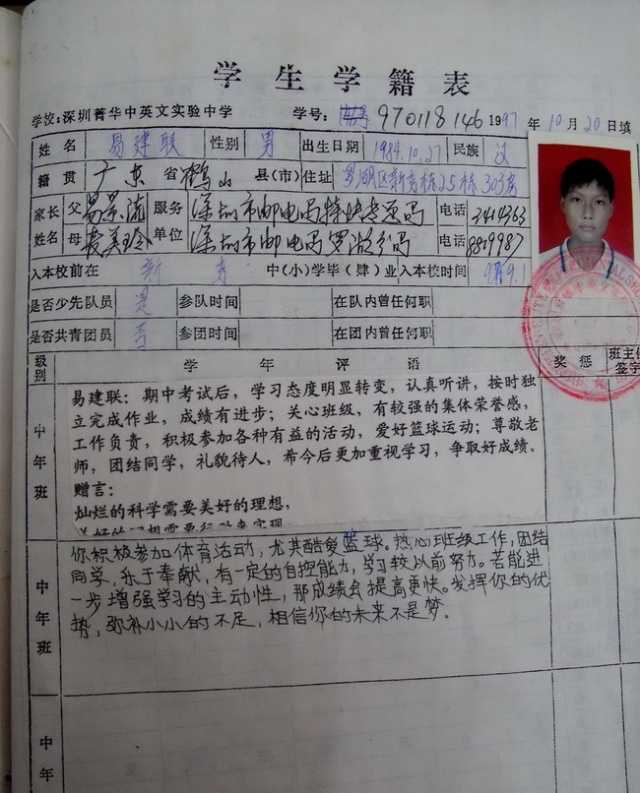 学生学籍表
学校：深圳菁华中英文实验中学 学号：970118146 1997年10月20日填
姓名 易建联 性别 男 出生日期 1984.10.27 民族 汉
籍贯 广东省鹤山县(市) 住址 罗湖区新秀村25栋303房
家长姓名 父 易景流 服务单位 深圳市邮电局特快专递局 电话
母 麦美玲 深圳市邮电局罗湖分局 电话
入本校前在 新秀 中(小)学毕(肆)业 入本校时间
是否少先队员 是 参队时间 在队内曾任何职
是否共青团员 否 参团时间 在团内曾任何职
级别 学年评语 奖惩 班主任签字
中年班
易建联：期中考试后，学习态度明显转变，认真听讲，按时独
立完成作业，成绩有进步；关心班级，有较强的集体荣誉感，
工作负责，积极参加各种有益的活动，爱好篮球运动；尊敬老
师，团结同学，礼貌待人，希今后更加重视学习，争取好成绩。
赠言：
灿烂的科学需要美好的理想，
中年班
你积极参加体育活动，尤其酷爱篮球。热心班级工作，团结
同学，乐于奉献，有一定的自控能力，学习较以前努力。若能进
一步增强学习的主动性，那成绩会提高更快。发挥你的优
势，弥补小小的不足，相信你的未来不是梦.
中年